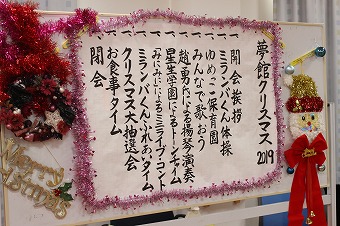 夢館クリスマス2019
一 開会挨拶
一 ミランバくん体操
一 ゆめっこ保育園
一 みんなで歌おう
一 趙勇内による揚琴演奏
一 星生学園によるトーンチャイム
一 みにみにによるミニライブ・コント
一 ミランバくんふれあいタイム
一 クリスマス大抽選会
一 お食事タイム
一 閉会
Merry Christmas